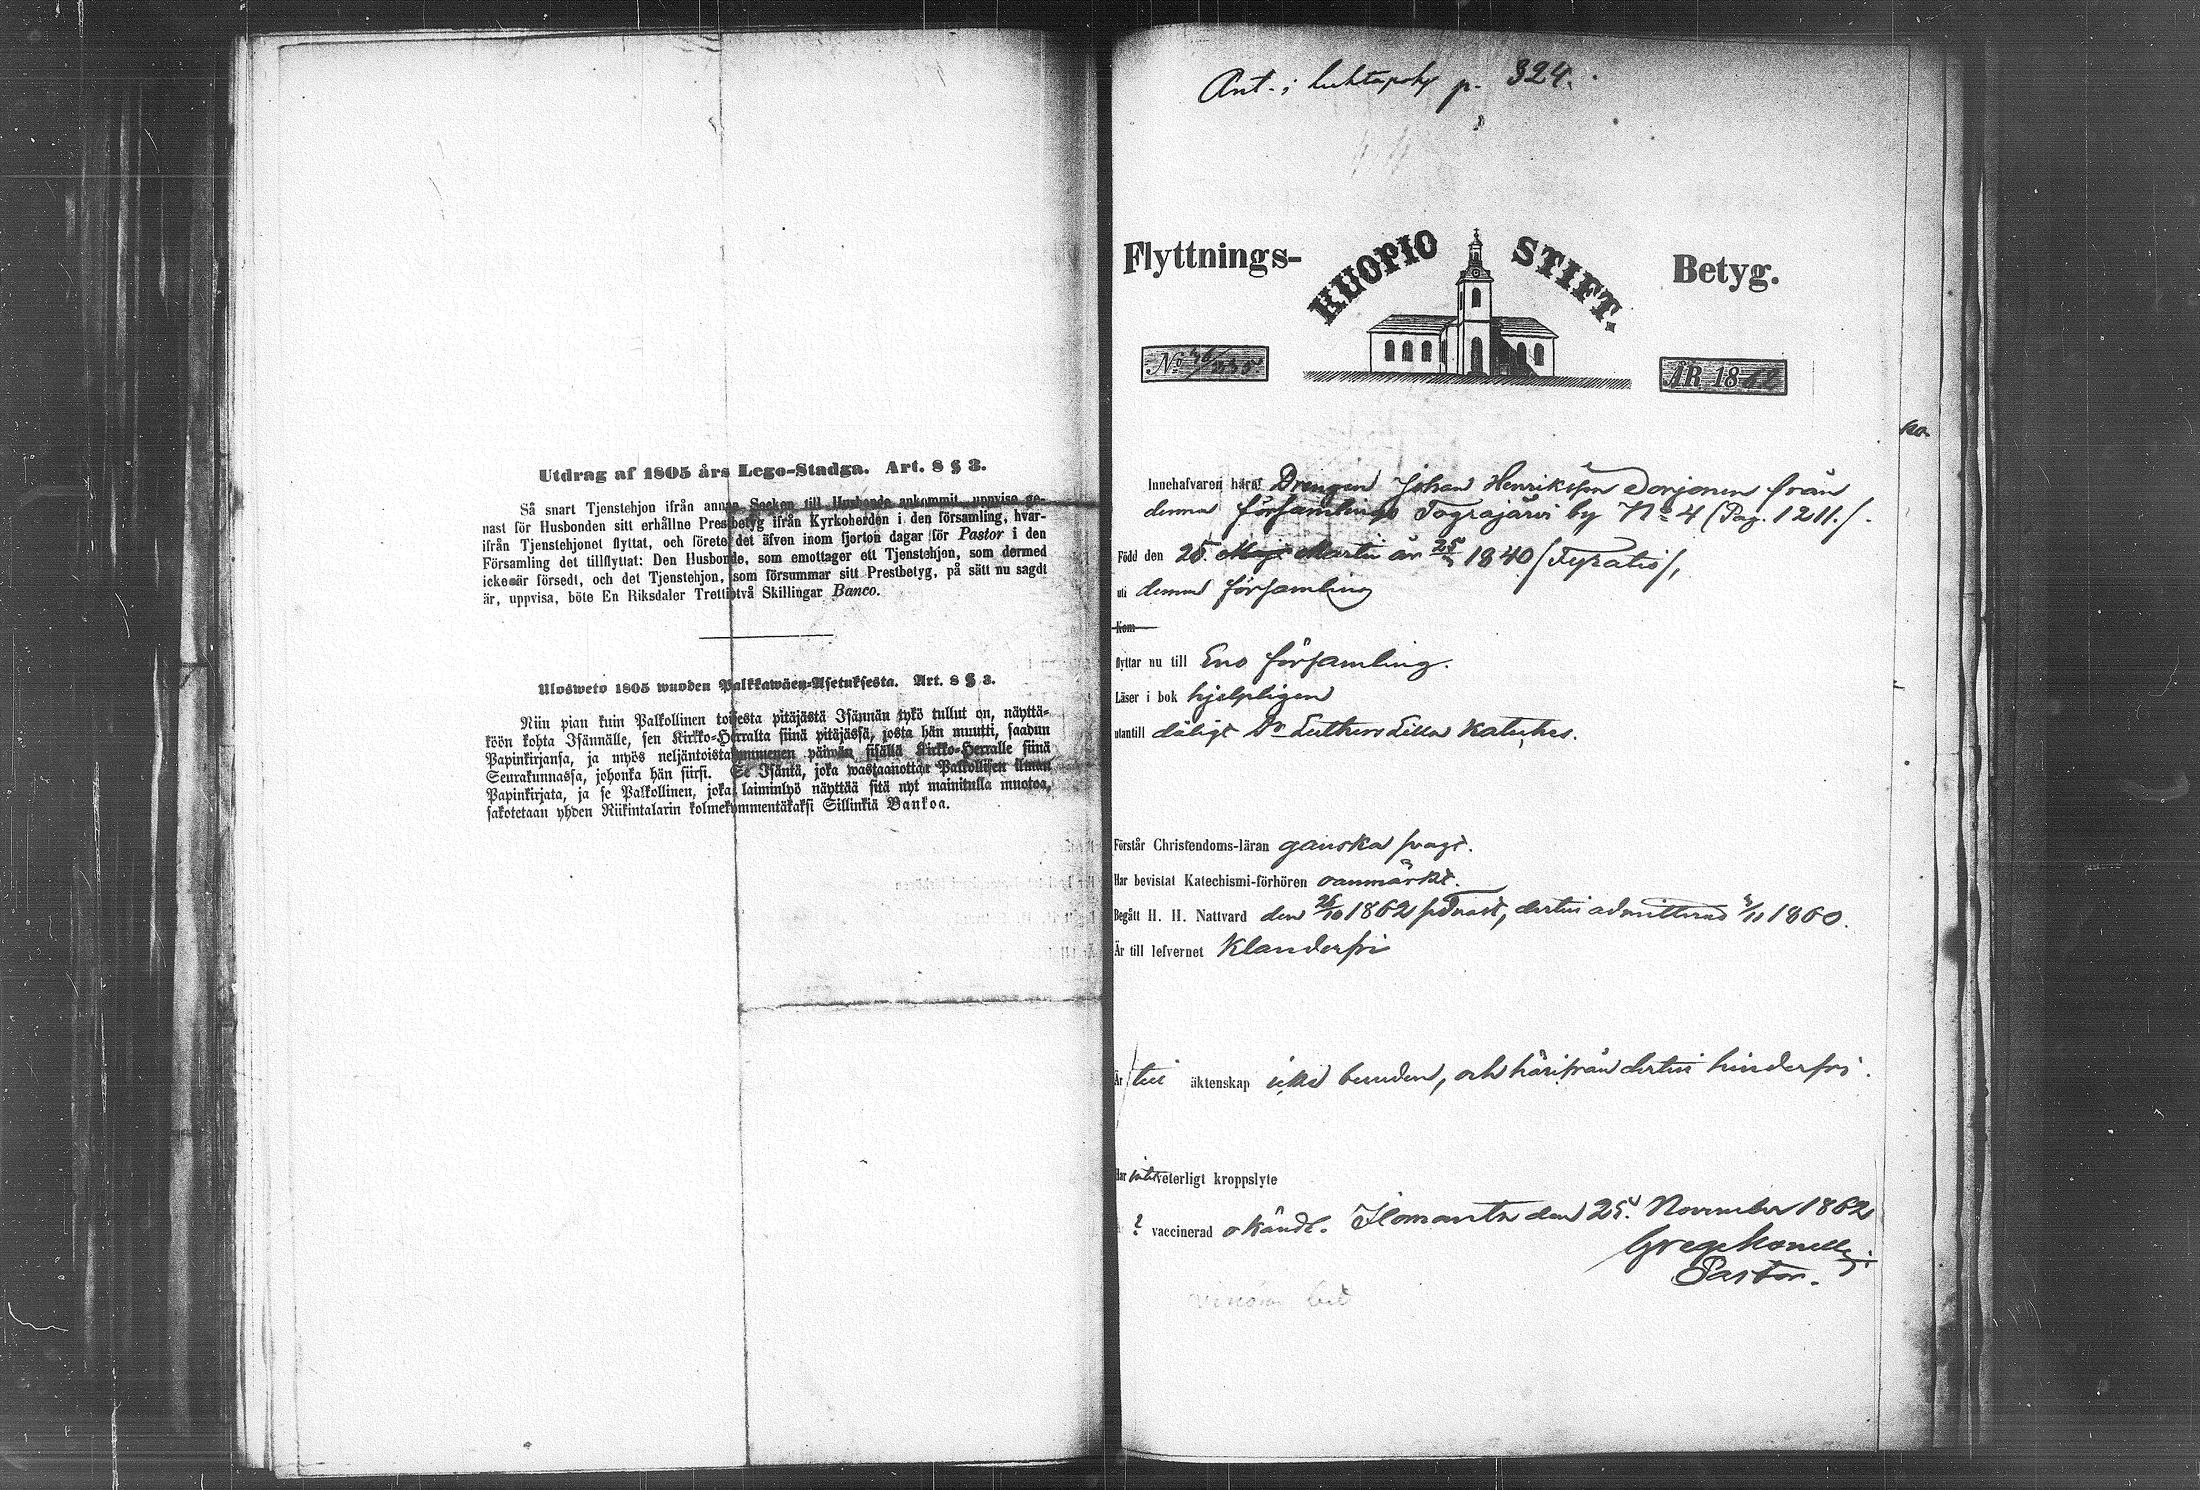 Utdrag af 1805 års Lego-Stadga. Art. 8 § 3.
Så snart Tjenstehjon ifrån annan Socken till Husbonde ankommit, uppvise ge-
nast för Husbonden sitt erhållne Prestbetyg ifrån Kyrkoherden i den församling, hvar-
ifrån Tjenstehjonet flyttat, och förete det äfven inom fjorton dagar för Pastor i den
Församling det tillflyttat: Den Husbonde, som emottager ett Tjenstehjon, som dermed
icke är försedt, och det Tjenstehjon, som försummar sitt Prestbetyg, på sätt nu sagdt
är, uppvisa, böte En Riksdaler Trettiotvå Skillingar Banco.
Ulosweto 1805 wuoden Palkkawäen-Asetuksesta. Art. 8 § 3.
Niin pian kuin Palkollinen toisesta pitäjästä Isännän tykö tullut on, näyttä-
köön kohta Isännälle, sen Kirkko-Herralta siinä pitäjässä, josta hän muutti, saadun
Papinkirjansa, ja myös neljäntoistakymmenen päiwän sisällä Kirkko-Herralle siinä
Seurakunnassa, johonka hän siirsi. Se Isäntä, joka wastaanottaa Palkollisen ilman
Papinkirjata, ja se Palkollinen, joka laiminlyö näyttää sitä nyt mainitulla muotoa,
sakotetaan yhden Riikintalarin kolmekymmentäkaksi Sillinkiä Bankoa.
Ant. i p. 324.
Flyttnings- KUOPIO STIFT. Betyg.
No ÅR 1862
Innehafvaren häraf Drengen Johan Henriksson Dorjonen från
denna församlings Tograjärvi by No 4 (Pag. 1211.).
Född den 25. Martii år 1840
uti denna församling
Kom
flyttar nu till Eno församling.
Läser i bok hjelpligen
utantill dåligt Dr Luthers Lilla Kateches.
Förstår Christendoms-läran ganska svagt.
Har bevistat Katechismi-förhören oanmärkt.
Begått H. H. Nattvard den 26/10 1862 sednast, dertill admitterad 3/11 1860.
Är till lefvernet Klanderfri
Är till äktenskap icke bunden, och härifrån dertill hinderfri.
Har intet veterligt kroppslyte
? vaccinerad okändt. Ilomants den 25. November 1862
Pastor.